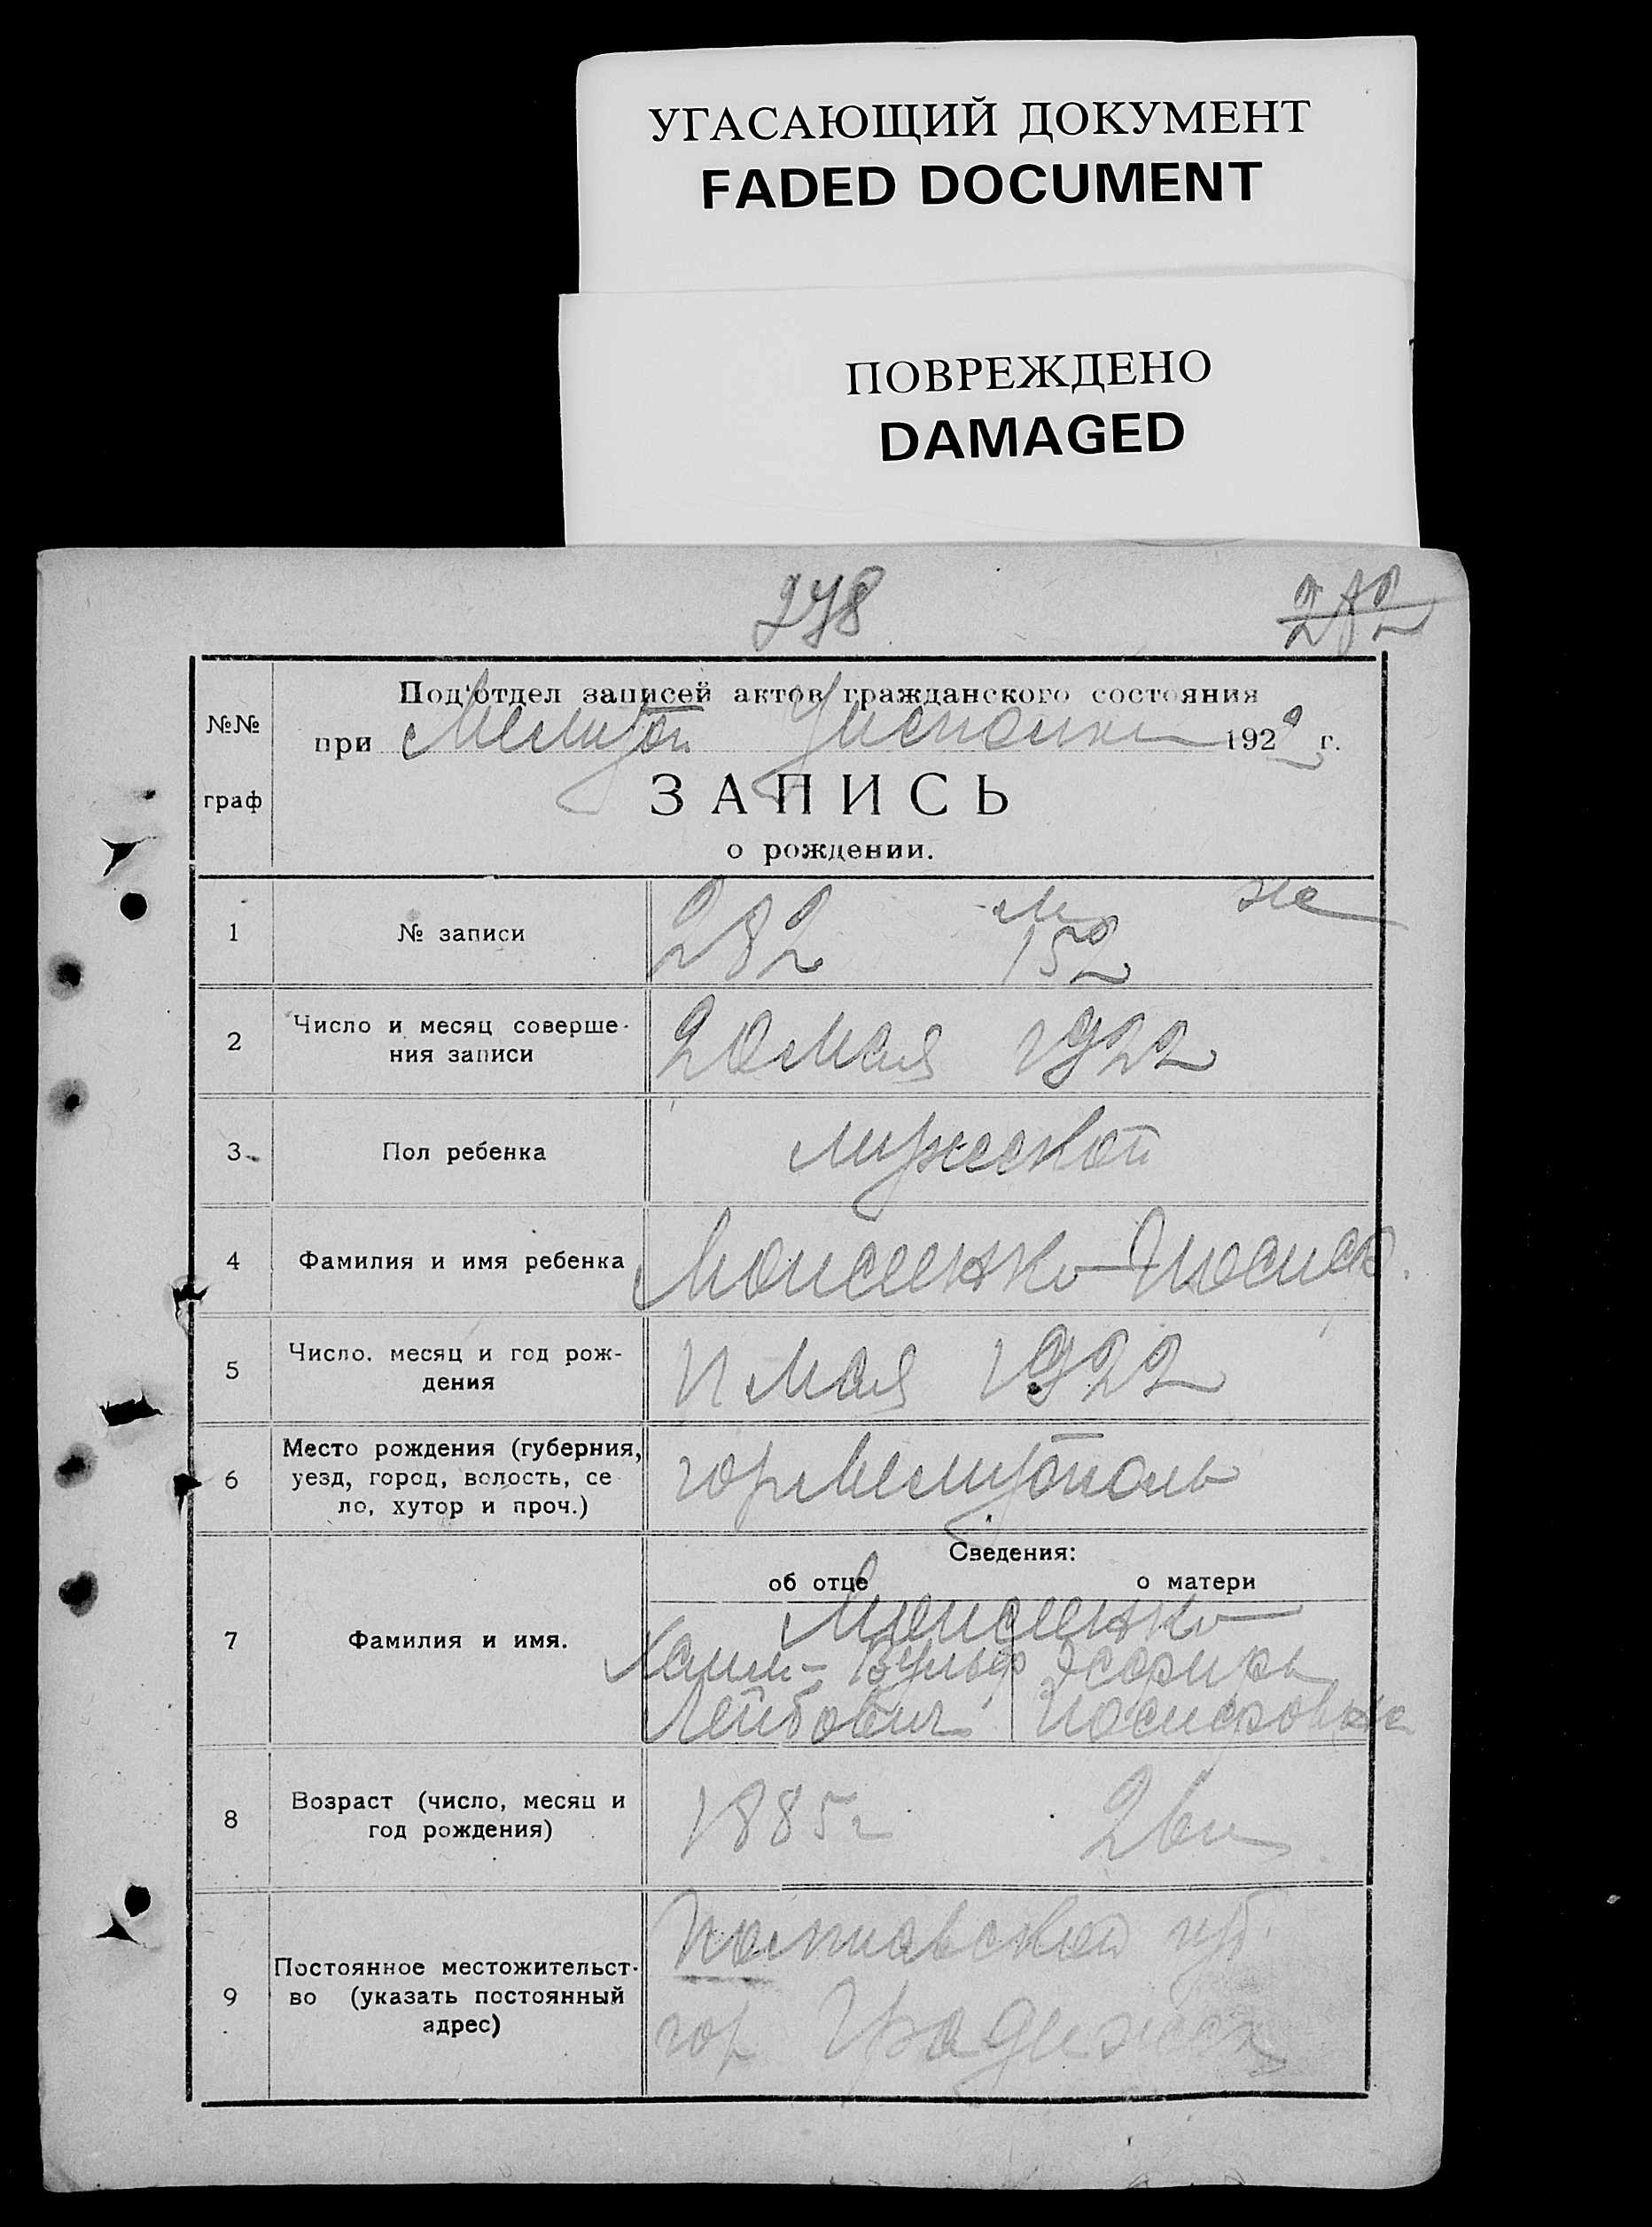 УГАСАЮЩИЙ ДОКУМЕНТ
FADED DOCUMENT
ПОВРЕЖДЕНО
DAMAGED
278
282
№№
граф
Под'отдел записей актов гражданского состояния
при Мелитоп 1922 г.
ЗАПИСЬ
о рождении.
1
№ записи
282 м 152 же
2
Число и месяц соверше-
ния записи
20 Мая 1922
3
Пол ребенка
мужеской
4
Фамилия и имя ребенка
Моисеенко Иосиф.
5
Число, месяц и год рож-
дения
11 Мая 1922
6
Место рождения (губерния,
уезд, город, волость, се
ло, хутор и проч.)
гор Мелитополь
Сведения:
об отце
о матери
7
Фамилия и имя.
Моисеенко
Хаим-Вульф Эсфирь
Лейбович Иосифовна
8
Возраст (число, месяц и
год рождения)
1885 г
9
Постоянное местожительст-
во (указать постоянный
адрес)
Полтавской губ.
гор Градижск